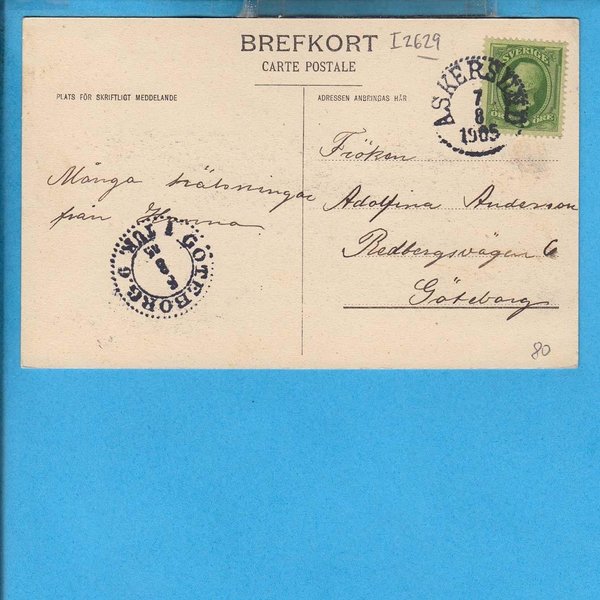 BREFKORT
CARTE POSTALE
I2629
PLATS FÖR SKRIFTLIGT MEDDELANDE
ADRESSEN ANBRINGAS HÄR
SVERIGE
ÖRE
ASKERSUND
7
8
1905
Många hälsningar
från
GÖTEBORG 6
1 TUR
8
05
Fröken
Adolfina Anderson
Redbergsvägen 6
Göteborg
80